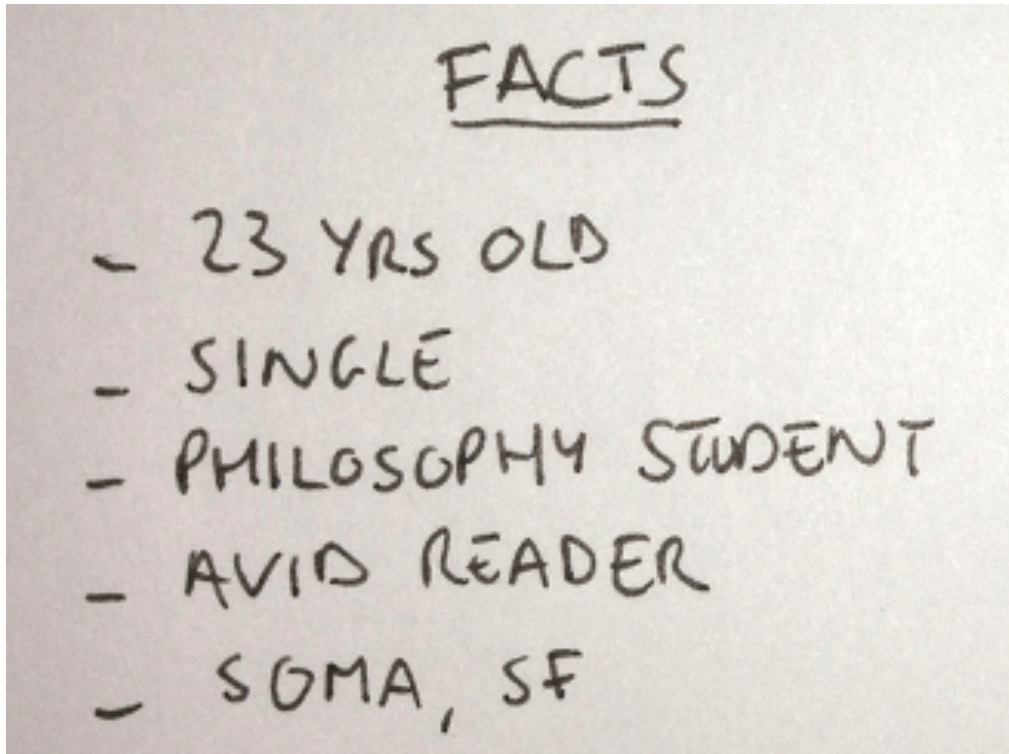 FACTS
- 23 YRS OLD
- SINGLE
- PHILOSOPHY STUDENT
- AVID READER
- SOMA, SF